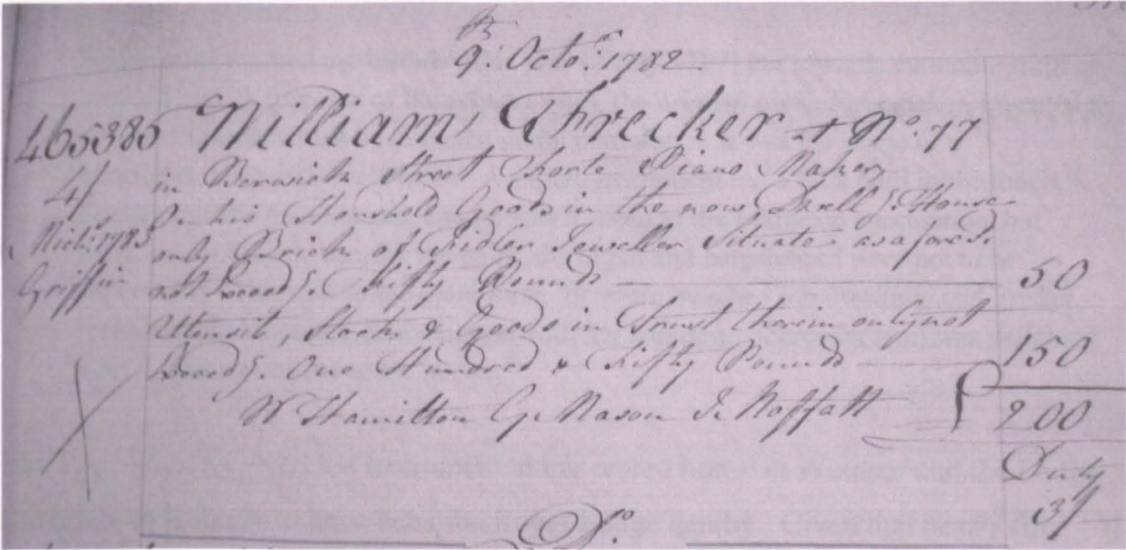 9. Octor. 1782
465385 William Threcker at No. 77
4/ in Berwick Street Forte Piano Maker
On his Houshold Goods in the now Dwell.g House
Mich.s 1783 only Brick of Sidler Jeweller Situate as afores.d
Griffin not Exceed.g Fifty Pounds 50
Utensils, Stock & Goods in Trust therein only not
Exceed.g One Hundred & Fifty Pounds 150
W Hamilton G. Mason J. Moffatt £ 200
Duty
3/
Do.